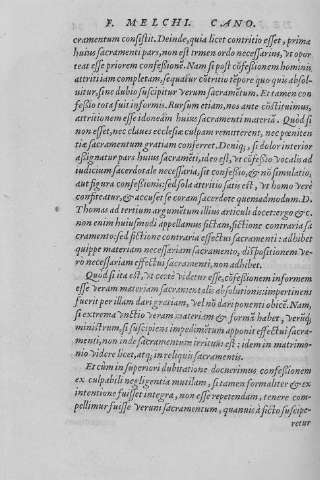 F. MELCHI. CANO.
cramentum consistit. Deinde, quia licet contritio esset, prima
huius sacramenti pars, non est tamen ordo necessarius, vt opor
teat esse priorem confessionē. Nam si post cōfessionem hominis
attriti iam completam, sequatur cōtritio tēpore quo quis absol-
uitur, sine dubio suscipitur verum sacramētum. Et tamen con
fessio tota fuit informis. Rursum etiam, nos ante cōstituimus,
attritionem esse idoneam huius sacramenti materiā. Quòd si
non esset, nec claues ecclesiæ culpam remitterent, nec pœniten
tiæ sacramentum gratiam conferret. Deniq;, si dolor interior
assignatur pars huius sacramēti, ideo est, vt cōfessio vocalis ad
iudicium sacerdotale necessaria, sit confessio, & nō simulatio,
aut figura confessionis: sed sola attritio satis est, vt homo verè
confiteatur, & accuset se coram sacerdote quemadmodum. D.
Thomas ad tertium argumētum illius articuli docet: ergo & c.
non enim huiusmodi appellamus fictam, fictione contraria sa
cramento: sed fictione contraria effectus sacramenti: adhibet
quippe materiam necessariam sacramento, dispositionem ve-
rò necessariam effectui sacramenti, non adhibet.
Quòd si ita est, vt certè videtur esse, cōfessionem informem
esse veram materiam sacramentalis absolutionis: impertinens
fuerit per illam dari gratiam, vel nō dari ponenti obicē. Nam,
si extrema vnctio veram materiam & formā habet, verūq;
ministrum, si suscipiens impedimētum apponit effectui sacra-
menti, non inde sacramentum irritum est: idem in matrimo-
nio videre licet, atq; in reliquis sacramentis.
Et cùm in superiori dubitatione docuerimus confessionem
ex culpabili negligentia mutilam, si tamen formaliter & ex
intentione fuisset integra, non esse repetendam, tenere com-
pellimur fuisse verum sacramentum, quamuis à ficto suscipe-
retur